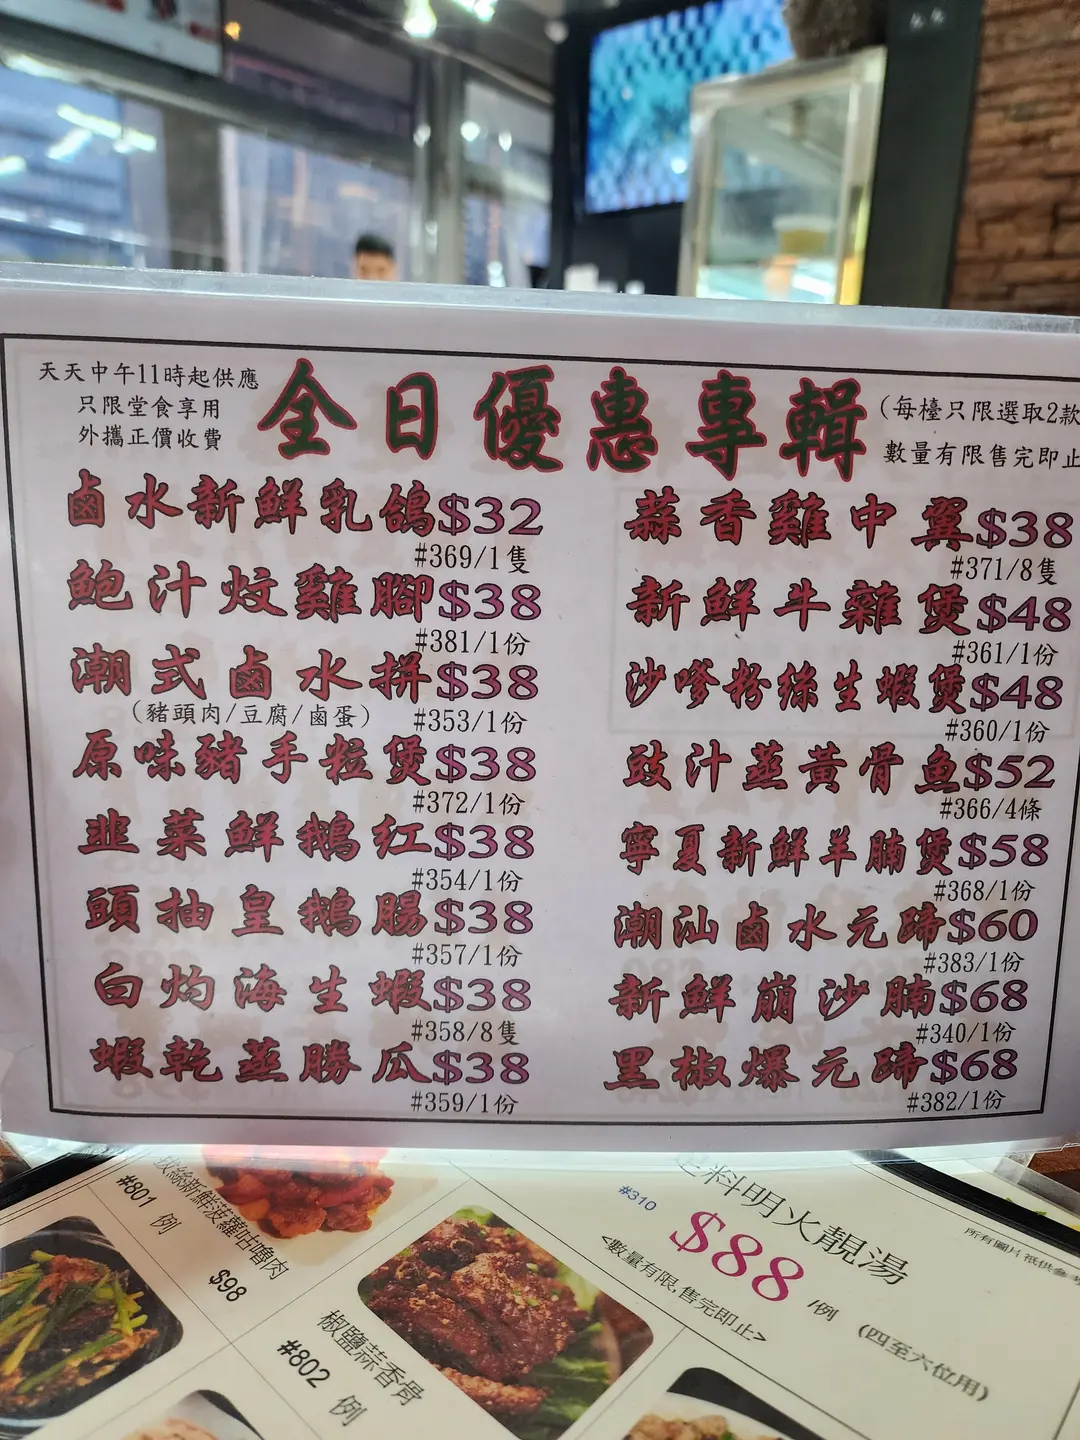 天天中午11時起供應
只限堂食享用
外攜正價收費
全日優惠專輯
(每檯只限選取2款
數量有限售完即止
鹵水新鮮乳鴿$32
#369/1隻
鮑汁炆雞腳$38
#381/1份
潮式鹵水拼$38
(豬頭肉/豆腐/鹵蛋)
#353/1份
原味豬手粒煲$38
#372/1份
韭菜鮮鵝红$38
#354/1份
頭抽皇鵝腸$38
#357/1份
白灼海生蝦$38
#358/8隻
蝦乾蒸勝瓜$38
#359/1份
蒜香雞中翼$38
#371/8隻
新鮮牛雜煲$48
#361/1份
沙嗲粉絲生蝦煲$48
#360/1份
豉汁蒸黃骨魚$52
#366/4條
寧夏新鮮羊腩煲$58
#368/1份
潮汕鹵水元蹄$60
#383/1份
新鮮崩沙腩$68
#340/1份
黑椒爆元蹄$68
#382/1份
絲新鮮菠蘿咕嚕肉
#801 例
$98
椒鹽蒜香骨
#802 例
料明火靚湯
#310
$88 /例
<數量有限,售完即止>
(四至六位用)
所有圖片祇供參